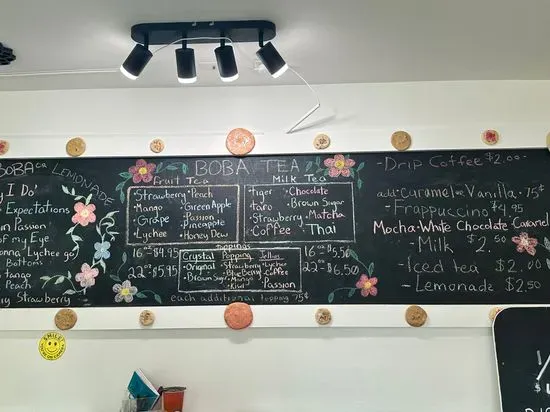 BOBA ca LEMONADE
I Do
Expectations
n Passion
of my Eye
onna Lychee go)
Bottoms
tango
Peach
y Strawberry
BOBA TEA
Fruit Tea
Strawberry · Peach
Mango · Green Apple
Grape · Passion
Lychee · Pineapple
· Honey Dew
16oz - $4.95
22oz $5.95
Milk Tea
tiger · Chocolate
taro · Brown Sugar
Strawberry · Matcha
Coffee · Thai
16oz $6.50
22oz - $6.50
toppings
Crystal Popping Jellies
· Original · Strawberry · Lychee
· Brown Sugar · Blueberry · Coffee
· Mango
· Kiwi · Passion
each additional topping 75¢
- Drip Coffee $2.00
add Caramel or Vanilla .75¢
- Frappuccino $4.95
Mocha · White Chocolate · Caramel
- Milk $2.50
- Iced tea $2.0
- Lemonade $2.50
SMILE